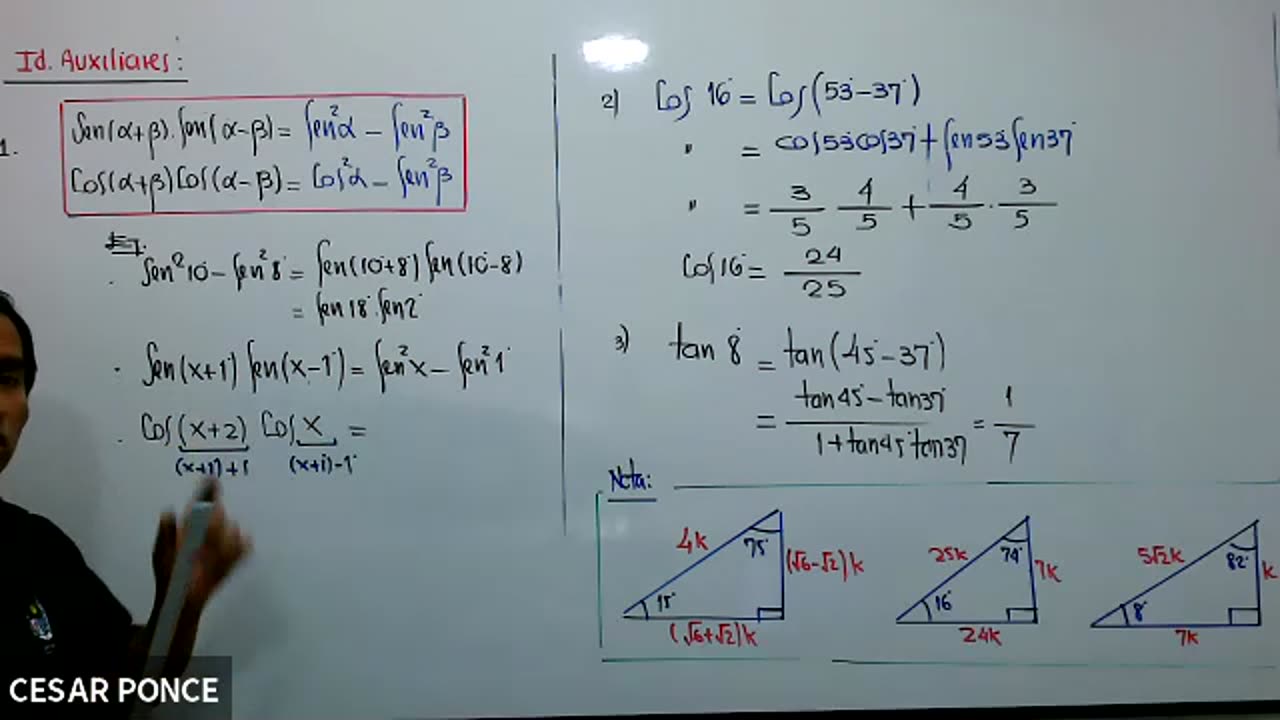 Id. Auxiliares:
1.
Sen(α+β).Sen(α-β) = Sen²α - Sen²β
Cos(α+β)Cos(α-β) = Cos²α - Sen²β
Ej.
. Sen²10° - Sen²8° = Sen(10°+8°) Sen(10°-8°)
= Sen18°.Sen2°
. Sen(x+1°) Sen(x-1°) = Sen²x - Sen²1°
. Cos(x+2) Cos x =
(x+1°)+1° (x+1)-1°
2) Cos 16° = Cos(53°-37°)
" = cos53°cos37° + Sen53°Sen37°
" = 3/5 4/5 + 4/5 . 3/5
Cos16° = 24/25
3) tan 8° = tan(45°-37°)
= tan45°-tan37° / 1+tan45°tan37° = 1/7
Nota:
4k 75° (√6-√2)k 15° (√6+√2)k
25k 74° 7k 16° 24k
5√2k 82° k 8° 7k
CESAR PONCE